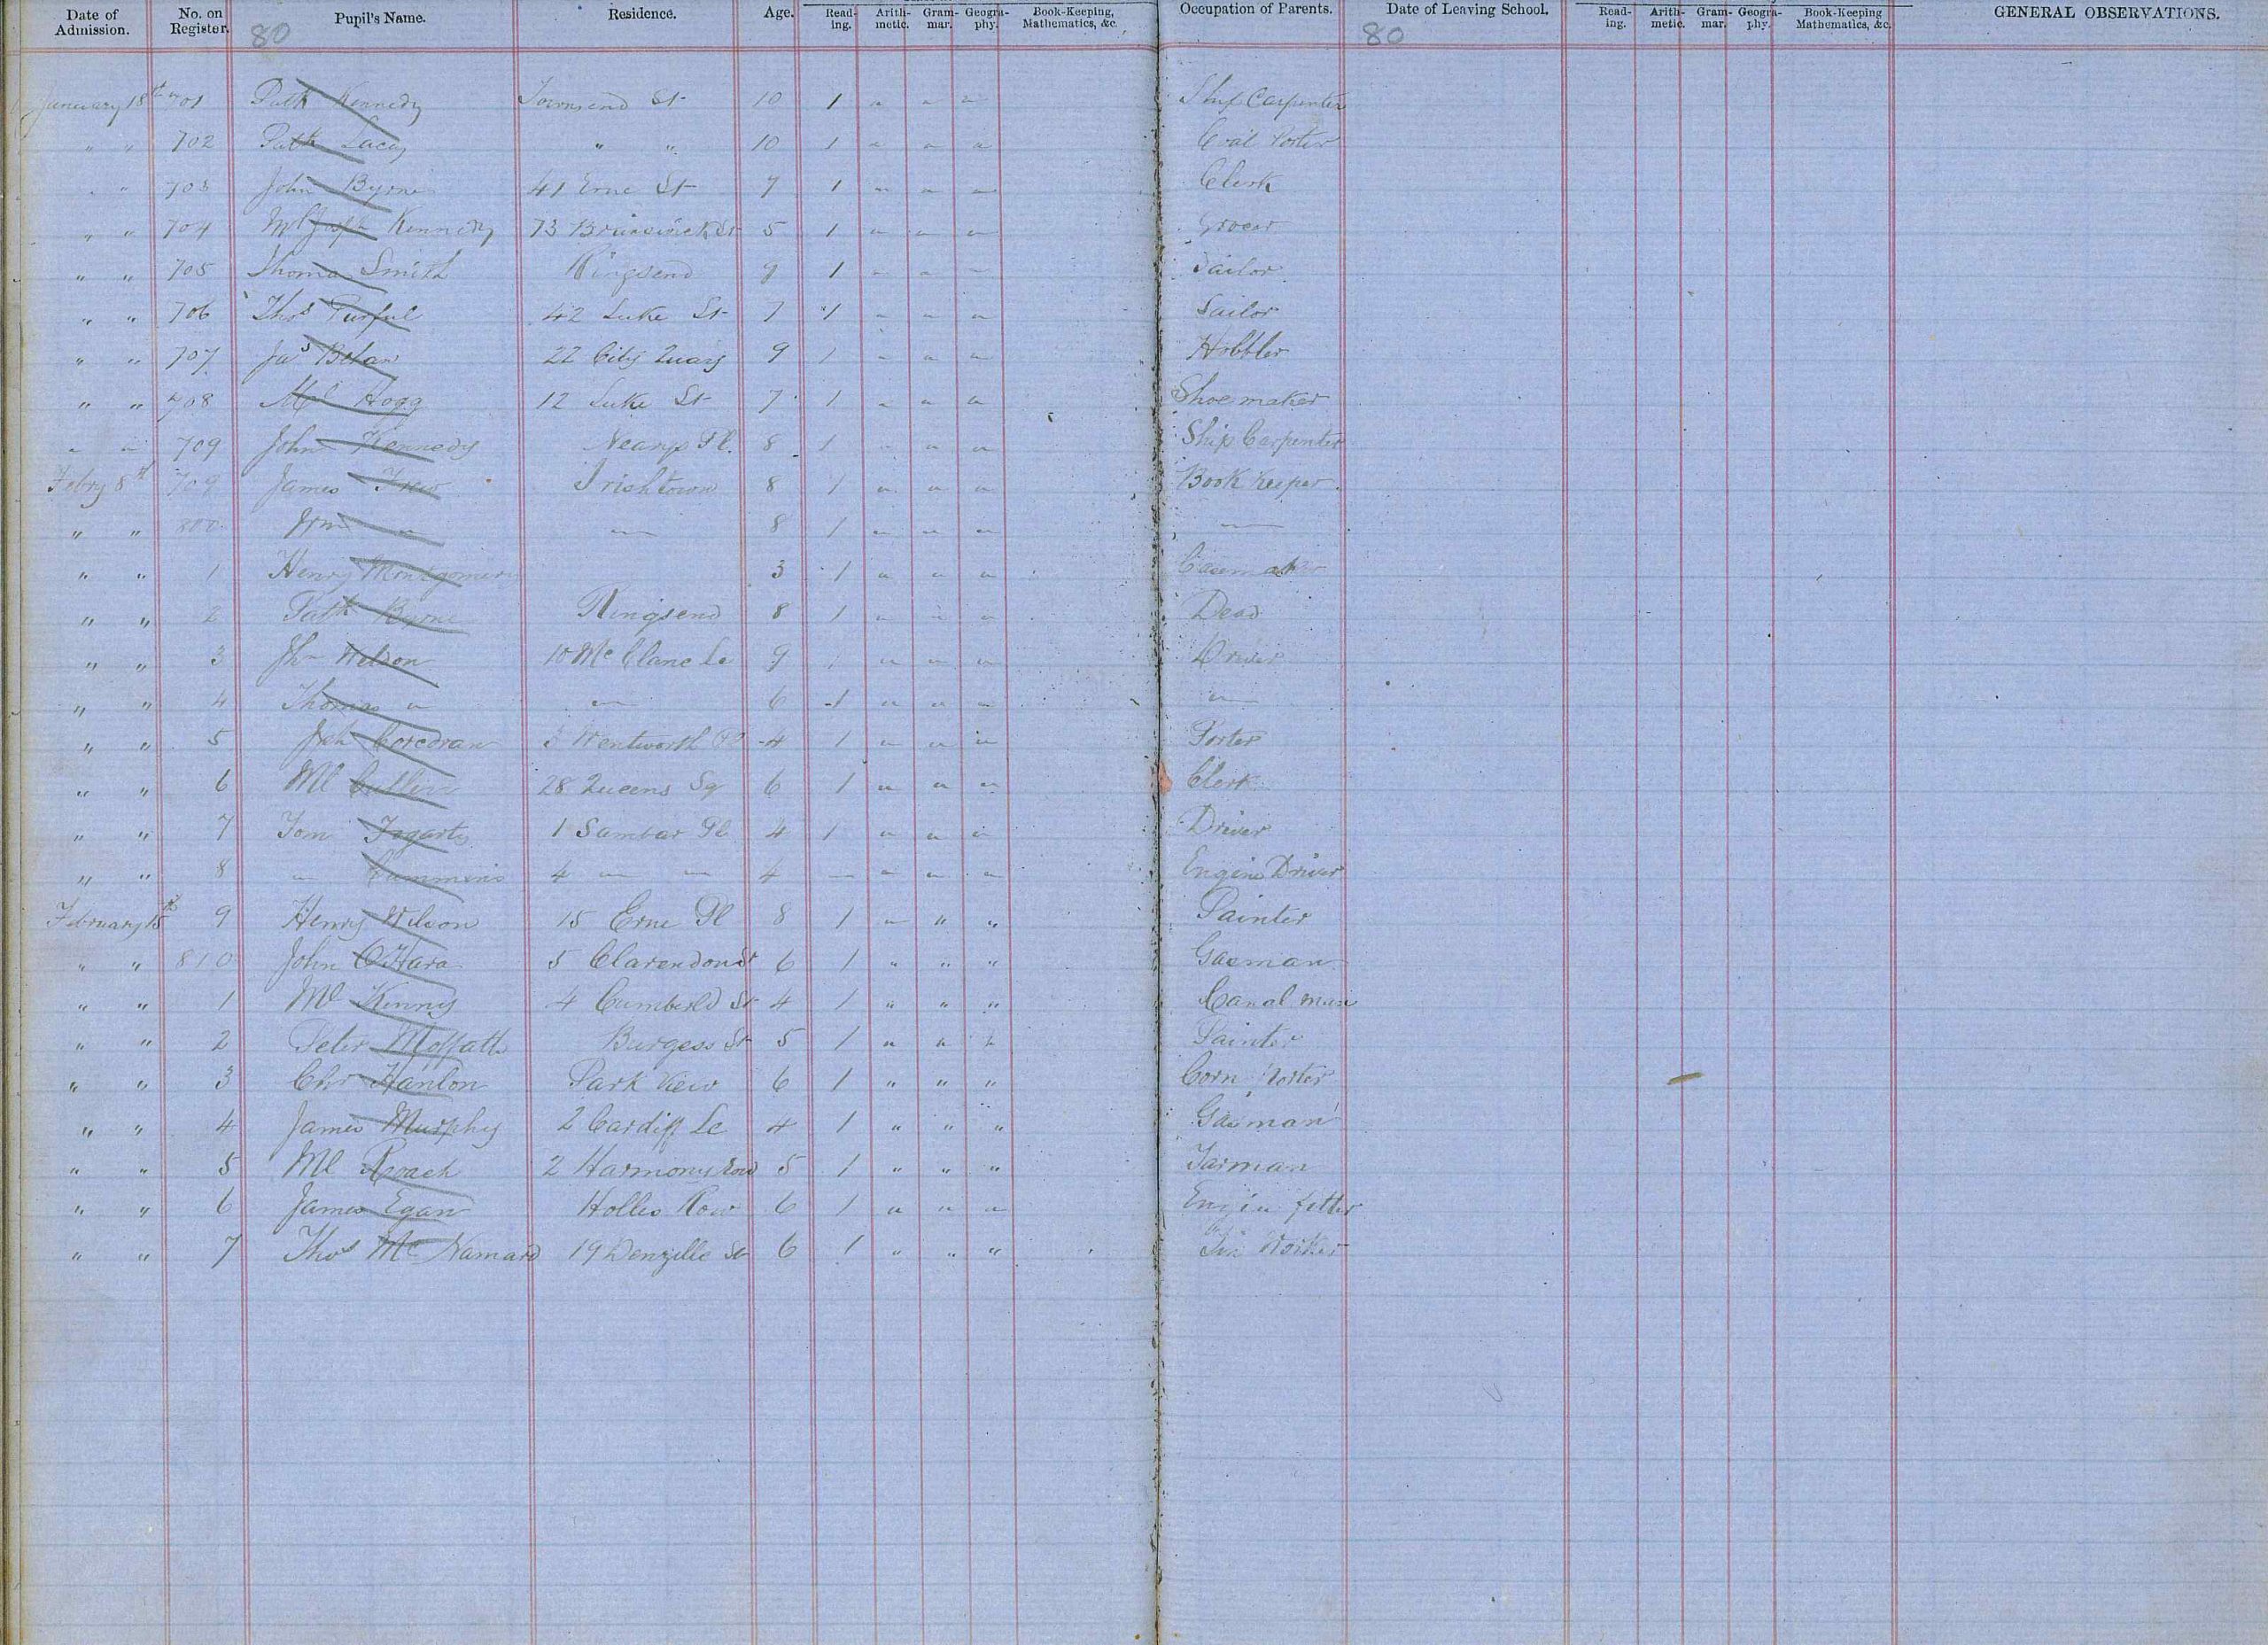 Date of Admission. No. on Register. Pupil's Name. Residence. Age. Read-ing. Arith-metic. Gram-mar. Geogra-phy. Book-Keeping, Mathematics, &c. Occupation of Parents. Date of Leaving School. Read-ing. Arith-metic. Gram-mar. Geogra-phy. Book-Keeping Mathematics, &c. GENERAL OBSERVATIONS.
80 80
January 18th 701 Patk Kennedy Townsend St 10 1 " " " Ship Carpenter
" " 702 Patk Lacey " " 10 1 " " " Coal Porter
" " 703 John Byrne 41 Erne St 7 1 " " " Clerk
" " 704 Ml Joseph Kennedy 73 Brunswick St 5 1 " " " Grocer
" " 705 Thomas Smith Ringsend 9 1 " " " Sailor
" " 706 Thos Purful 42 Luke St 7 1 " " " Sailor
" " 707 Jas Bolan 22 City Quay 9 1 " " " Hobbler
" " 708 Ml Hogg 12 Luke St 7 1 " " " Shoe maker
" " 709 John Kennedy Nearys Pl. 8 1 " " " Ship Carpenter
Febry 8th 709 James Irishtown 8 1 " " " Book Keeper
" " 800 Wm " " 8 1 " " " "
" " 1 Henry Montgomery 3 1 " " "
" " 2 Patk Byrne Ringsend 8 1 " " " Dead
" " 3 Jhn Wilson 10 Mc Clane Le 9 " " " Driver
" " 4 Thomas " " 6 1 " " " "
" " 5 Joh Corcoran 3 Wentworth Pl 4 1 " " " Porter
" " 6 Ml Cullen 28 Queens Sq 6 1 " " " Clerk
" " 7 Tom Fogarty 1 Sambar Pl 4 1 " " " Driver
" " 8 " Cummins 4 " " 4 " " " " Engine Driver
February 15th 9 Henry Wilson 15 Erne Pl 8 1 " " " Painter
" " 810 John O'Hara 5 Clarendon St 6 1 " " " Gasman
" " 1 Ml Kenny 4 Cumberld St 4 1 " " " Canal man
" " 2 Peter Moffatt Burgess St 5 1 " " " Painter
" " 3 Chr Hanlon Park View 6 1 " " " Corn Porter
" " 4 James Murphy 2 Cardiff Le 4 1 " " " Gasman
" " 5 Ml Roach 2 Harmony Row 5 1 " " " Tarman
" " 6 James Egan Holles Row 6 1 " " " Engin fitter
" " 7 Thos Mc Namard 19 Denzille St 6 1 " " " Tin Worker